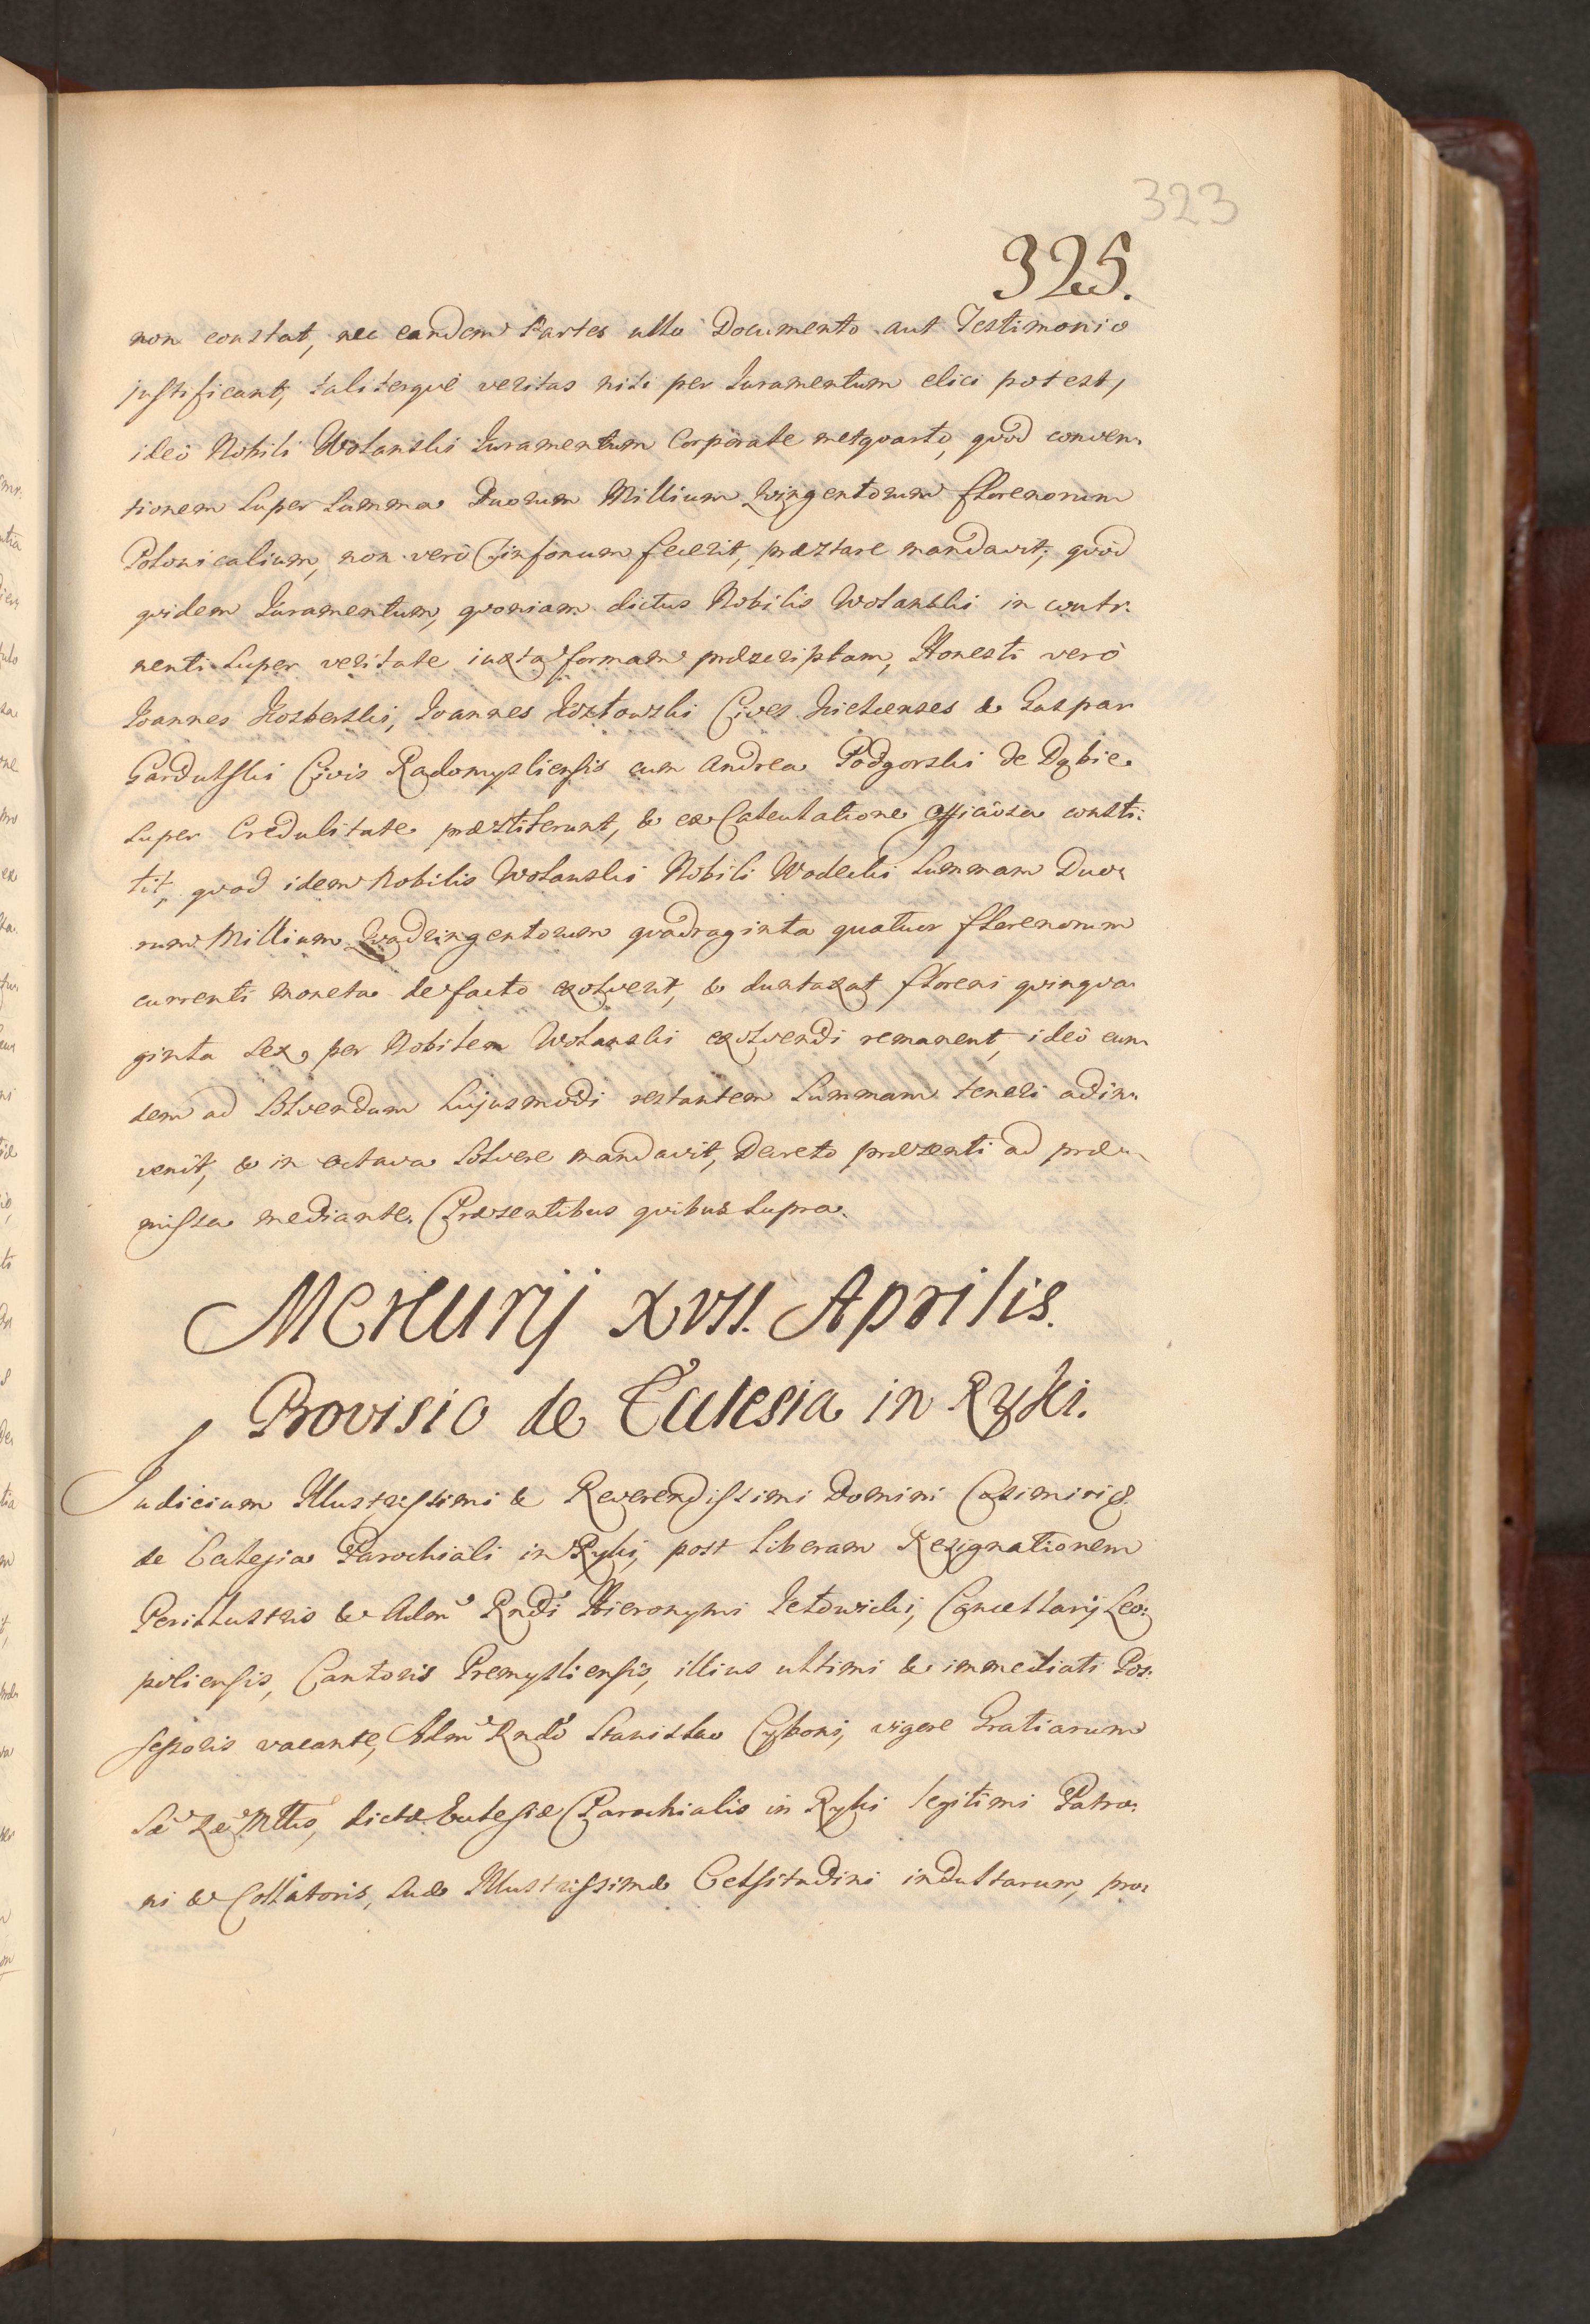 323
325.
non constat, nec eandem Partes ullo Documento aut Testimonio
justificant, taliterque veritas nisi per Juramentum elici potest,
ideò Nobili Wolanski Juramentum Corporale metquarto, quod conven-
tionem super Summa Duorum Millium Quingentorum florenorum
Polonicalium, non verò Tinfonum fecerit, præstare mandavit; quòd
quidem Juramentum, quoniam dictus Nobilis Wolanski in conti-
nenti super veritate iuxta formam præscriptam, Honesti verò
Joannes Kosberski, Joannes Kostowski Cives Kielcenses & Gaspar
Gardulski Civis Radomysliensis cum Andrea Podgorski de Dąbie
super Credulitate præstiterunt, & ex Calculatione officiosa consti-
tit, quod idem Nobilis Wolanski Nobili Wodecki Summam Duo-
rum Millium Quadringentorum quadraginta quatuor florenorum
currenti moneta de facto exolverit, & duntaxat floreni quinqua-
ginta sex, per Nobilem Wolanski exolvendi remanent, ideò eun-
dem ad solvendum hujusmodi restantem Summam teneri adin-
venit, & in octava solvere mandavit, Decreto præsenti ad præ-
missa mediante. Præsentibus quibus supra.
Mercurij XVII. Aprilis.
Provisio de Ecclesia in Ryki.
Judicium Illustrissimi & Reverendissimi Domini Casimiri &.
de Ecclesia Parochiali in Ryki, post liberam Resignationem
Perillustris & Adm Rndi Hieronymi Jełowicki, Cancellarij Leo-
poliensis, Cantoris Premysliensis, illius ultimi & immediati Pos-
sessoris vacante, Adm Rndo Stanislao Cyboni, vigore Gratiarum
Sæ Ræ Mttis, dictæ Ecclesiæ Parochialis in Ryki legitimi Patro-
ni & Collatoris, suæ Illustrissimæ Celsitudini indultarum, pro-